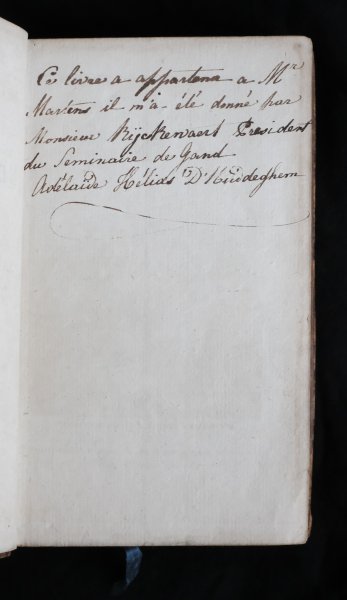 Ce livre a appartenu a Mr
Martens il m'a été donné par
Monsieur Rÿckewaert President
du Seminaire de Gand
Adélaïde Hélias D'Huddeghem